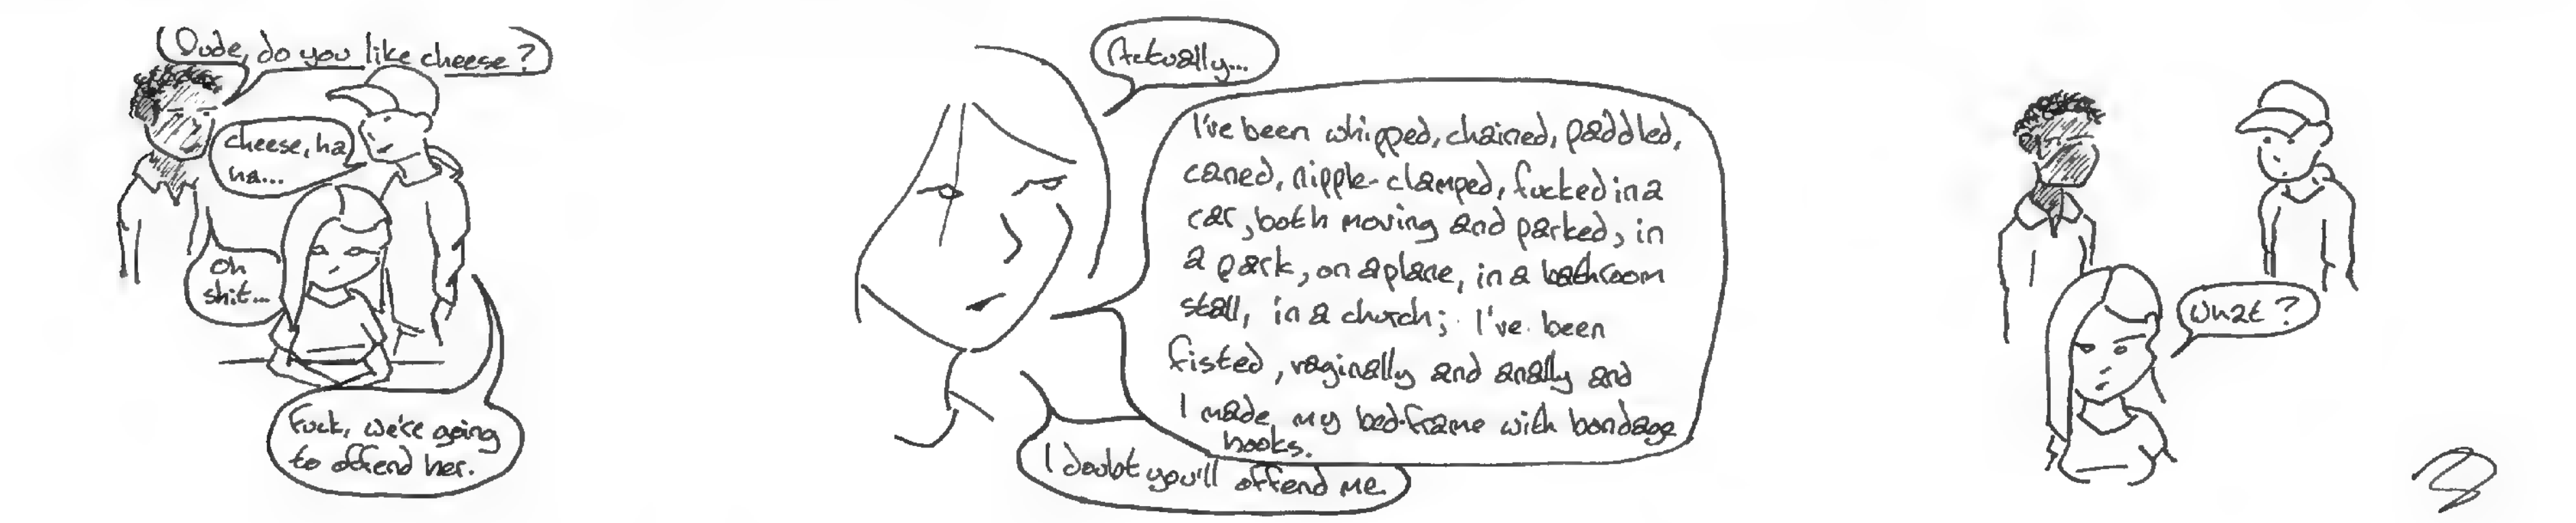 Dude, do you like cheese?
cheese, ha
ha...
Oh
shit...
Fuck, we're going
to offend her.
Actually...
I've been whipped, chained, paddled,
caned, nipple-clamped, fucked in a
car, both moving and parked, in
a park, on a plane, in a bathroom
stall, in a church; I've been
fisted, vaginally and anally and
I made my bed-frame with bondage
hooks.
I doubt you'll offend me.
What?